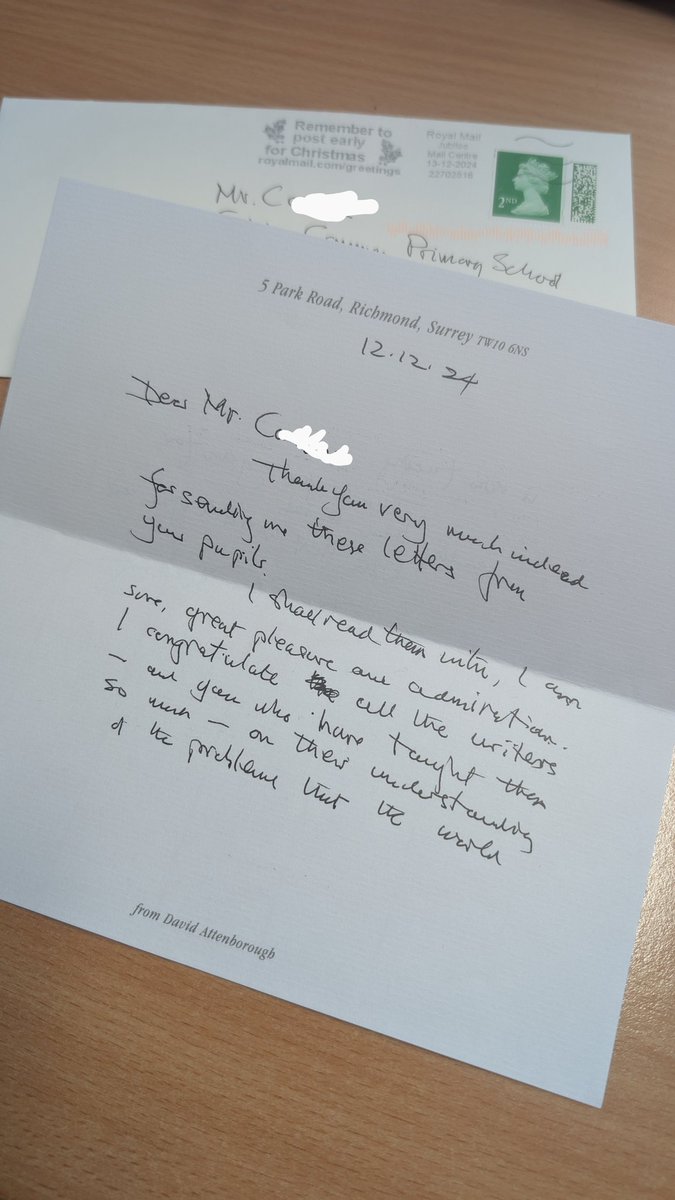 Remember to
post early
for Christmas
royalmail.com/greetings
Royal Mail
Jubilee
Mail Centre
13-12-2024
22702516
2ND
Mr. C
Primary School
5 Park Road, Richmond, Surrey TW10 6NS
12.12.24
Dear Mr. C
Thank you very much indeed
for sending me these letters from
your pupils.
I shall read them with, I am
sure, great pleasure and admiration.
I congratulate all the writers
– and you who have taught them
so much – on their understanding
of the problems that the world
from David Attenborough